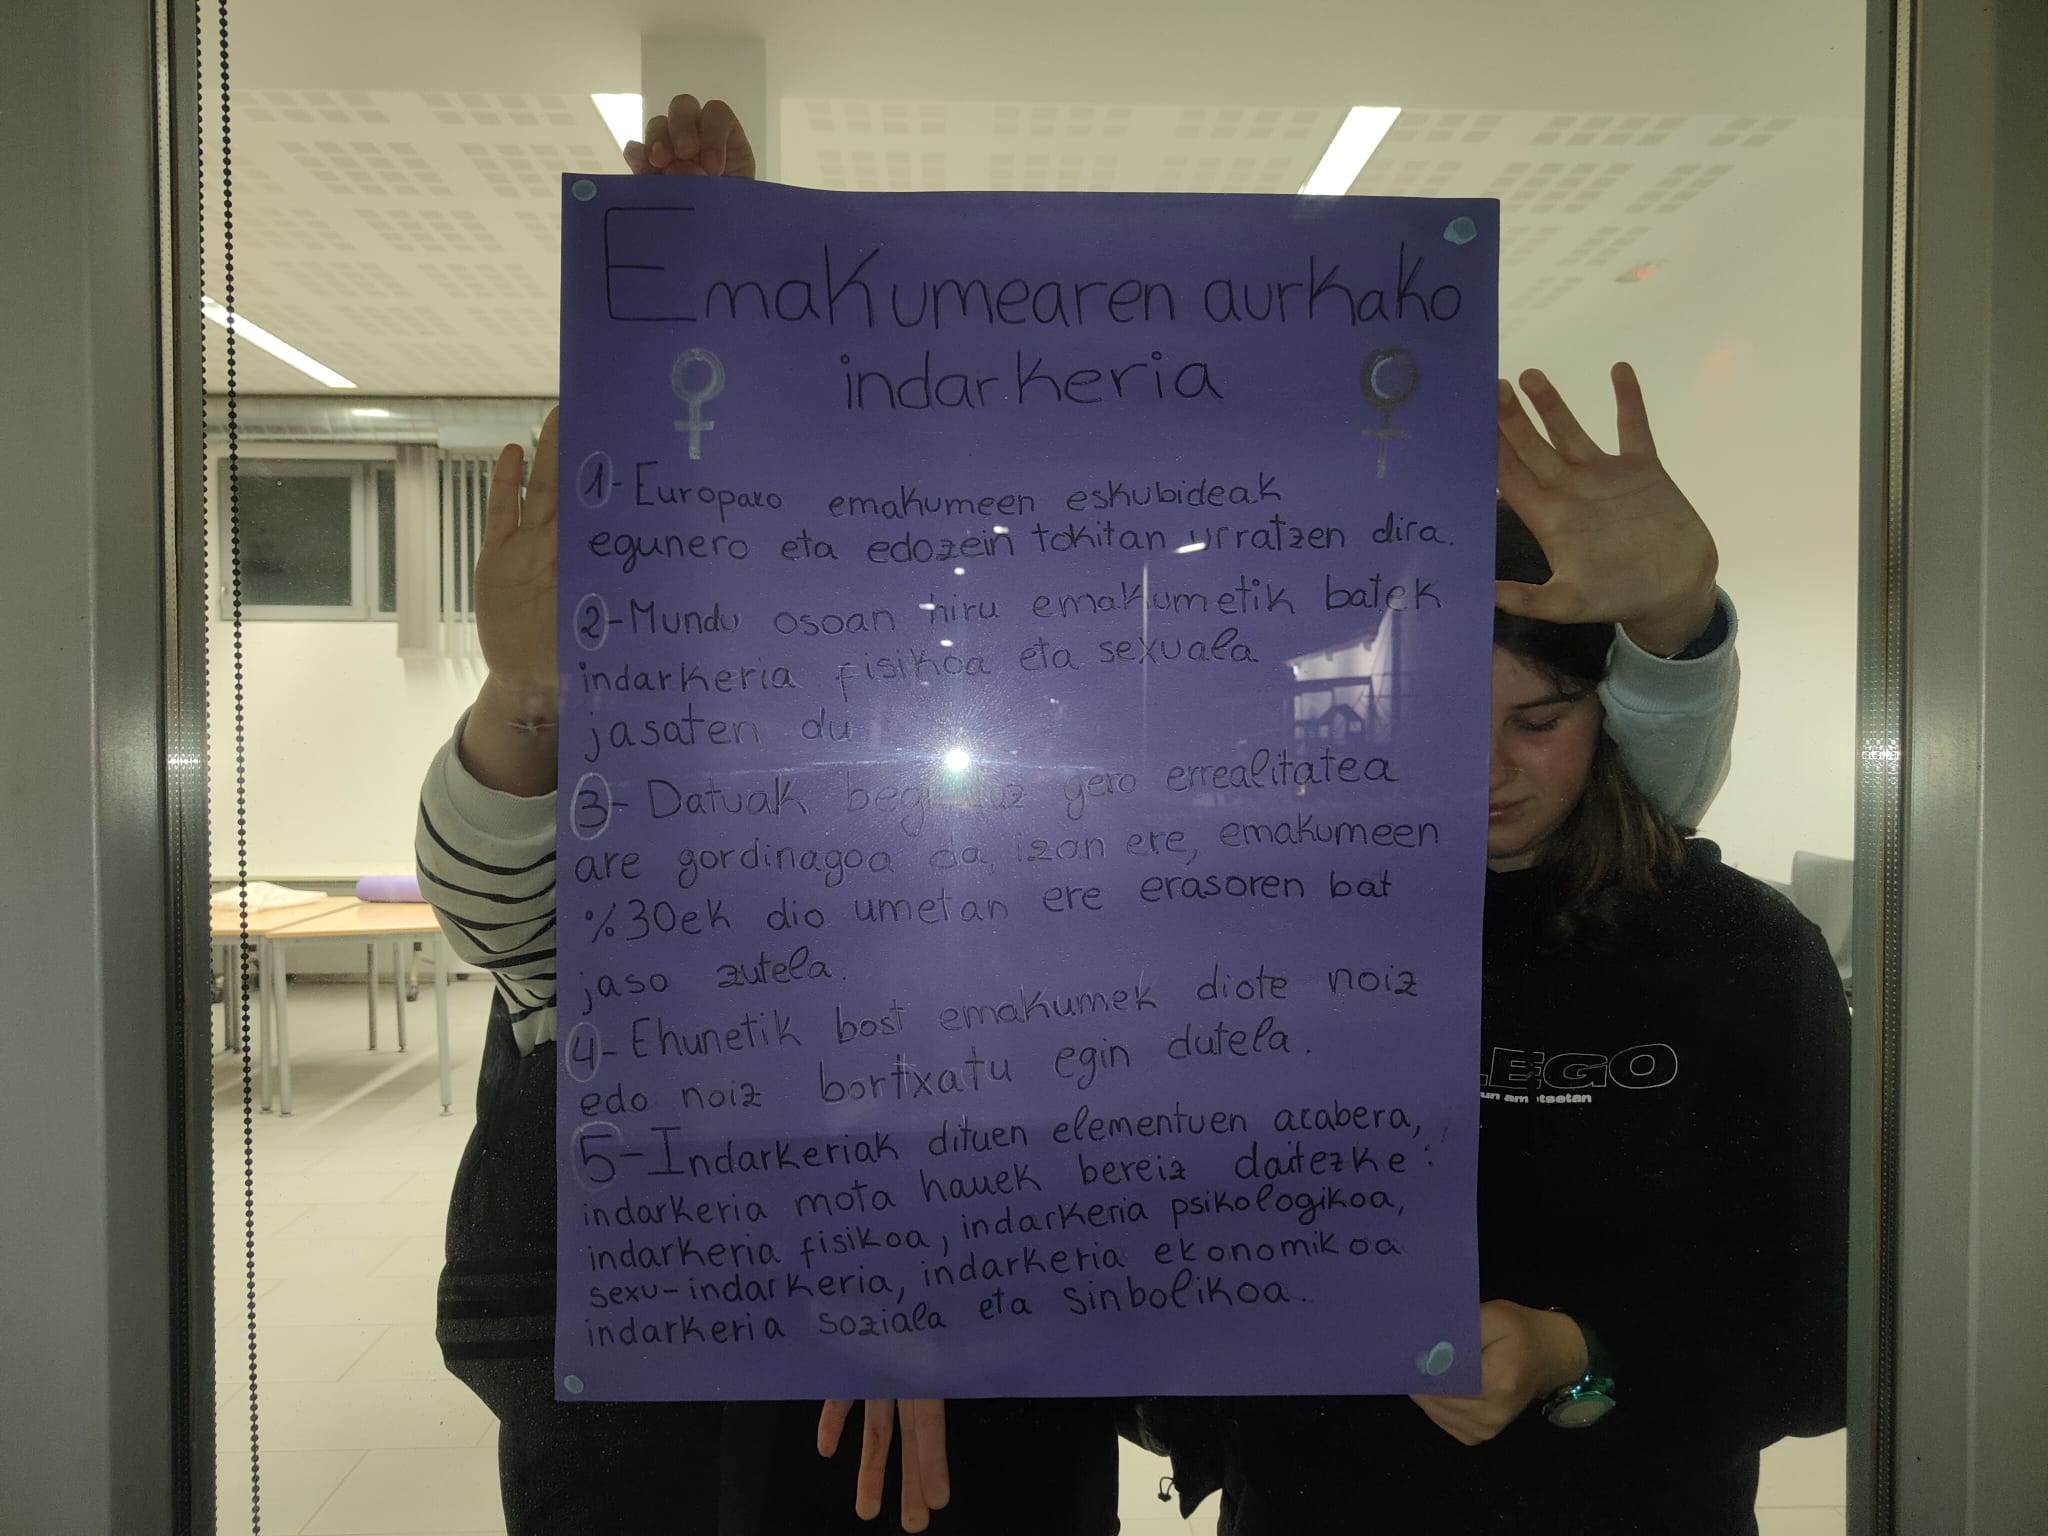 Emakumearen aurkako
indarkeria
1- Europako emakumeen eskubideak
egunero eta edozein tokitan urratzen dira.
2- Mundu osoan hiru emakumetik batek
indarkeria fisikoa eta sexuala
jasaten du
3- Datuak gero errealitatea
are gordinagoa da, izan ere, emakumeen
%30ek dio umetan ere erasoren bat
jaso zutela.
4- Ehunetik bost emakumek diote noiz
edo noiz bortxatu egin dutela.
5- Indarkeriak dituen elementuen acabera,
indarkeria mota hauek bereiz daitezke:
indarkeria fisikoa, indarkeria psikologikoa,
sexu-indarkeria, indarkeria ekonomikoa
indarkeria soziala eta sinbolikoa.
LEGO